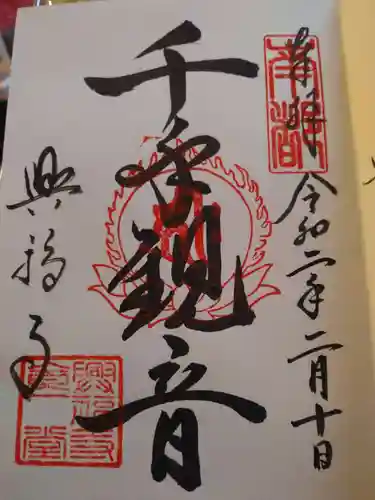 奉拝
令和二年二月十日
千手観音
興福寺
南都